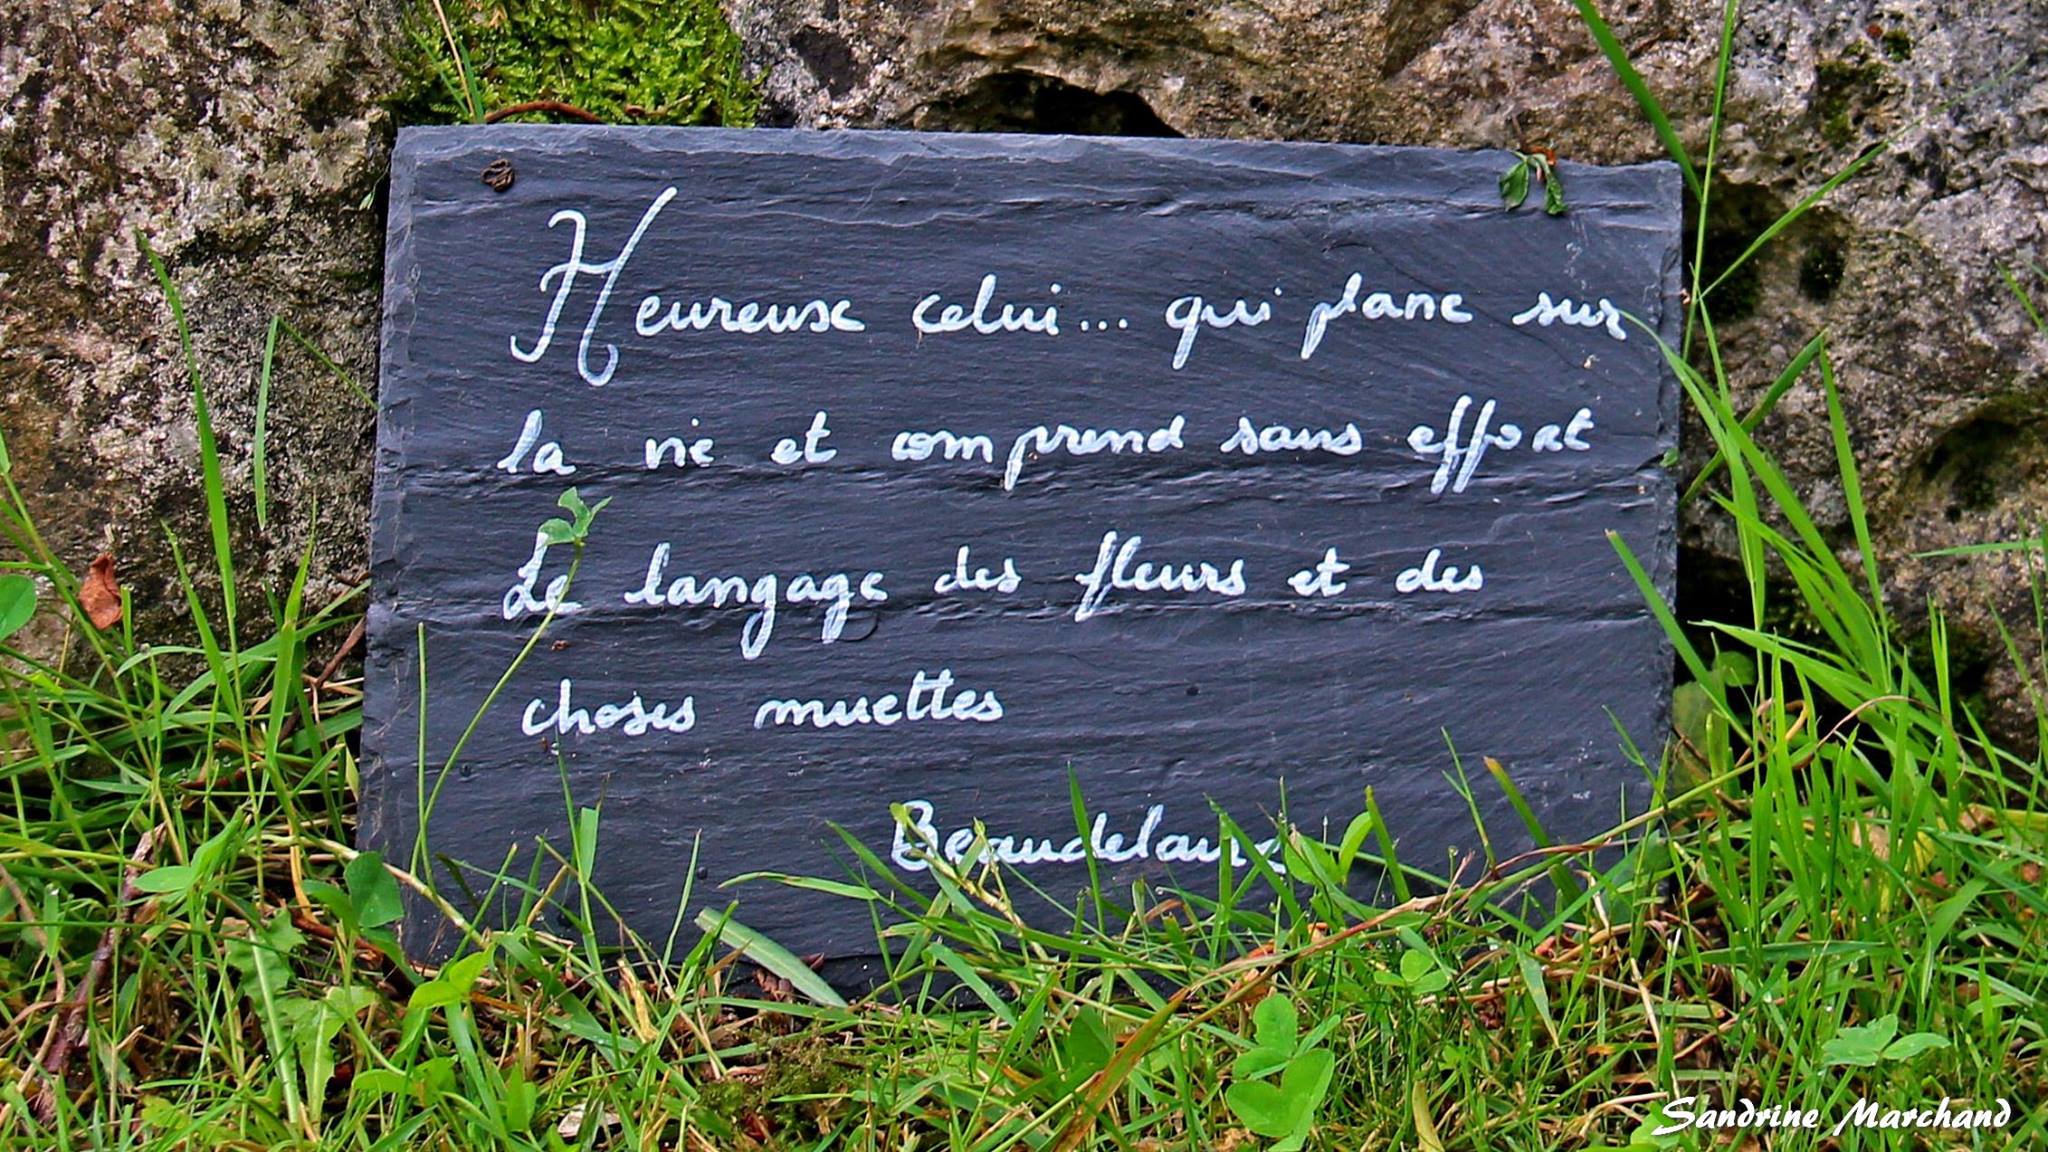 Heureuse celui... qui plane sur
la vie et comprend sans effort
Le langage des fleurs et des
choses muettes
Beaudelaire
Sandrine Marchand